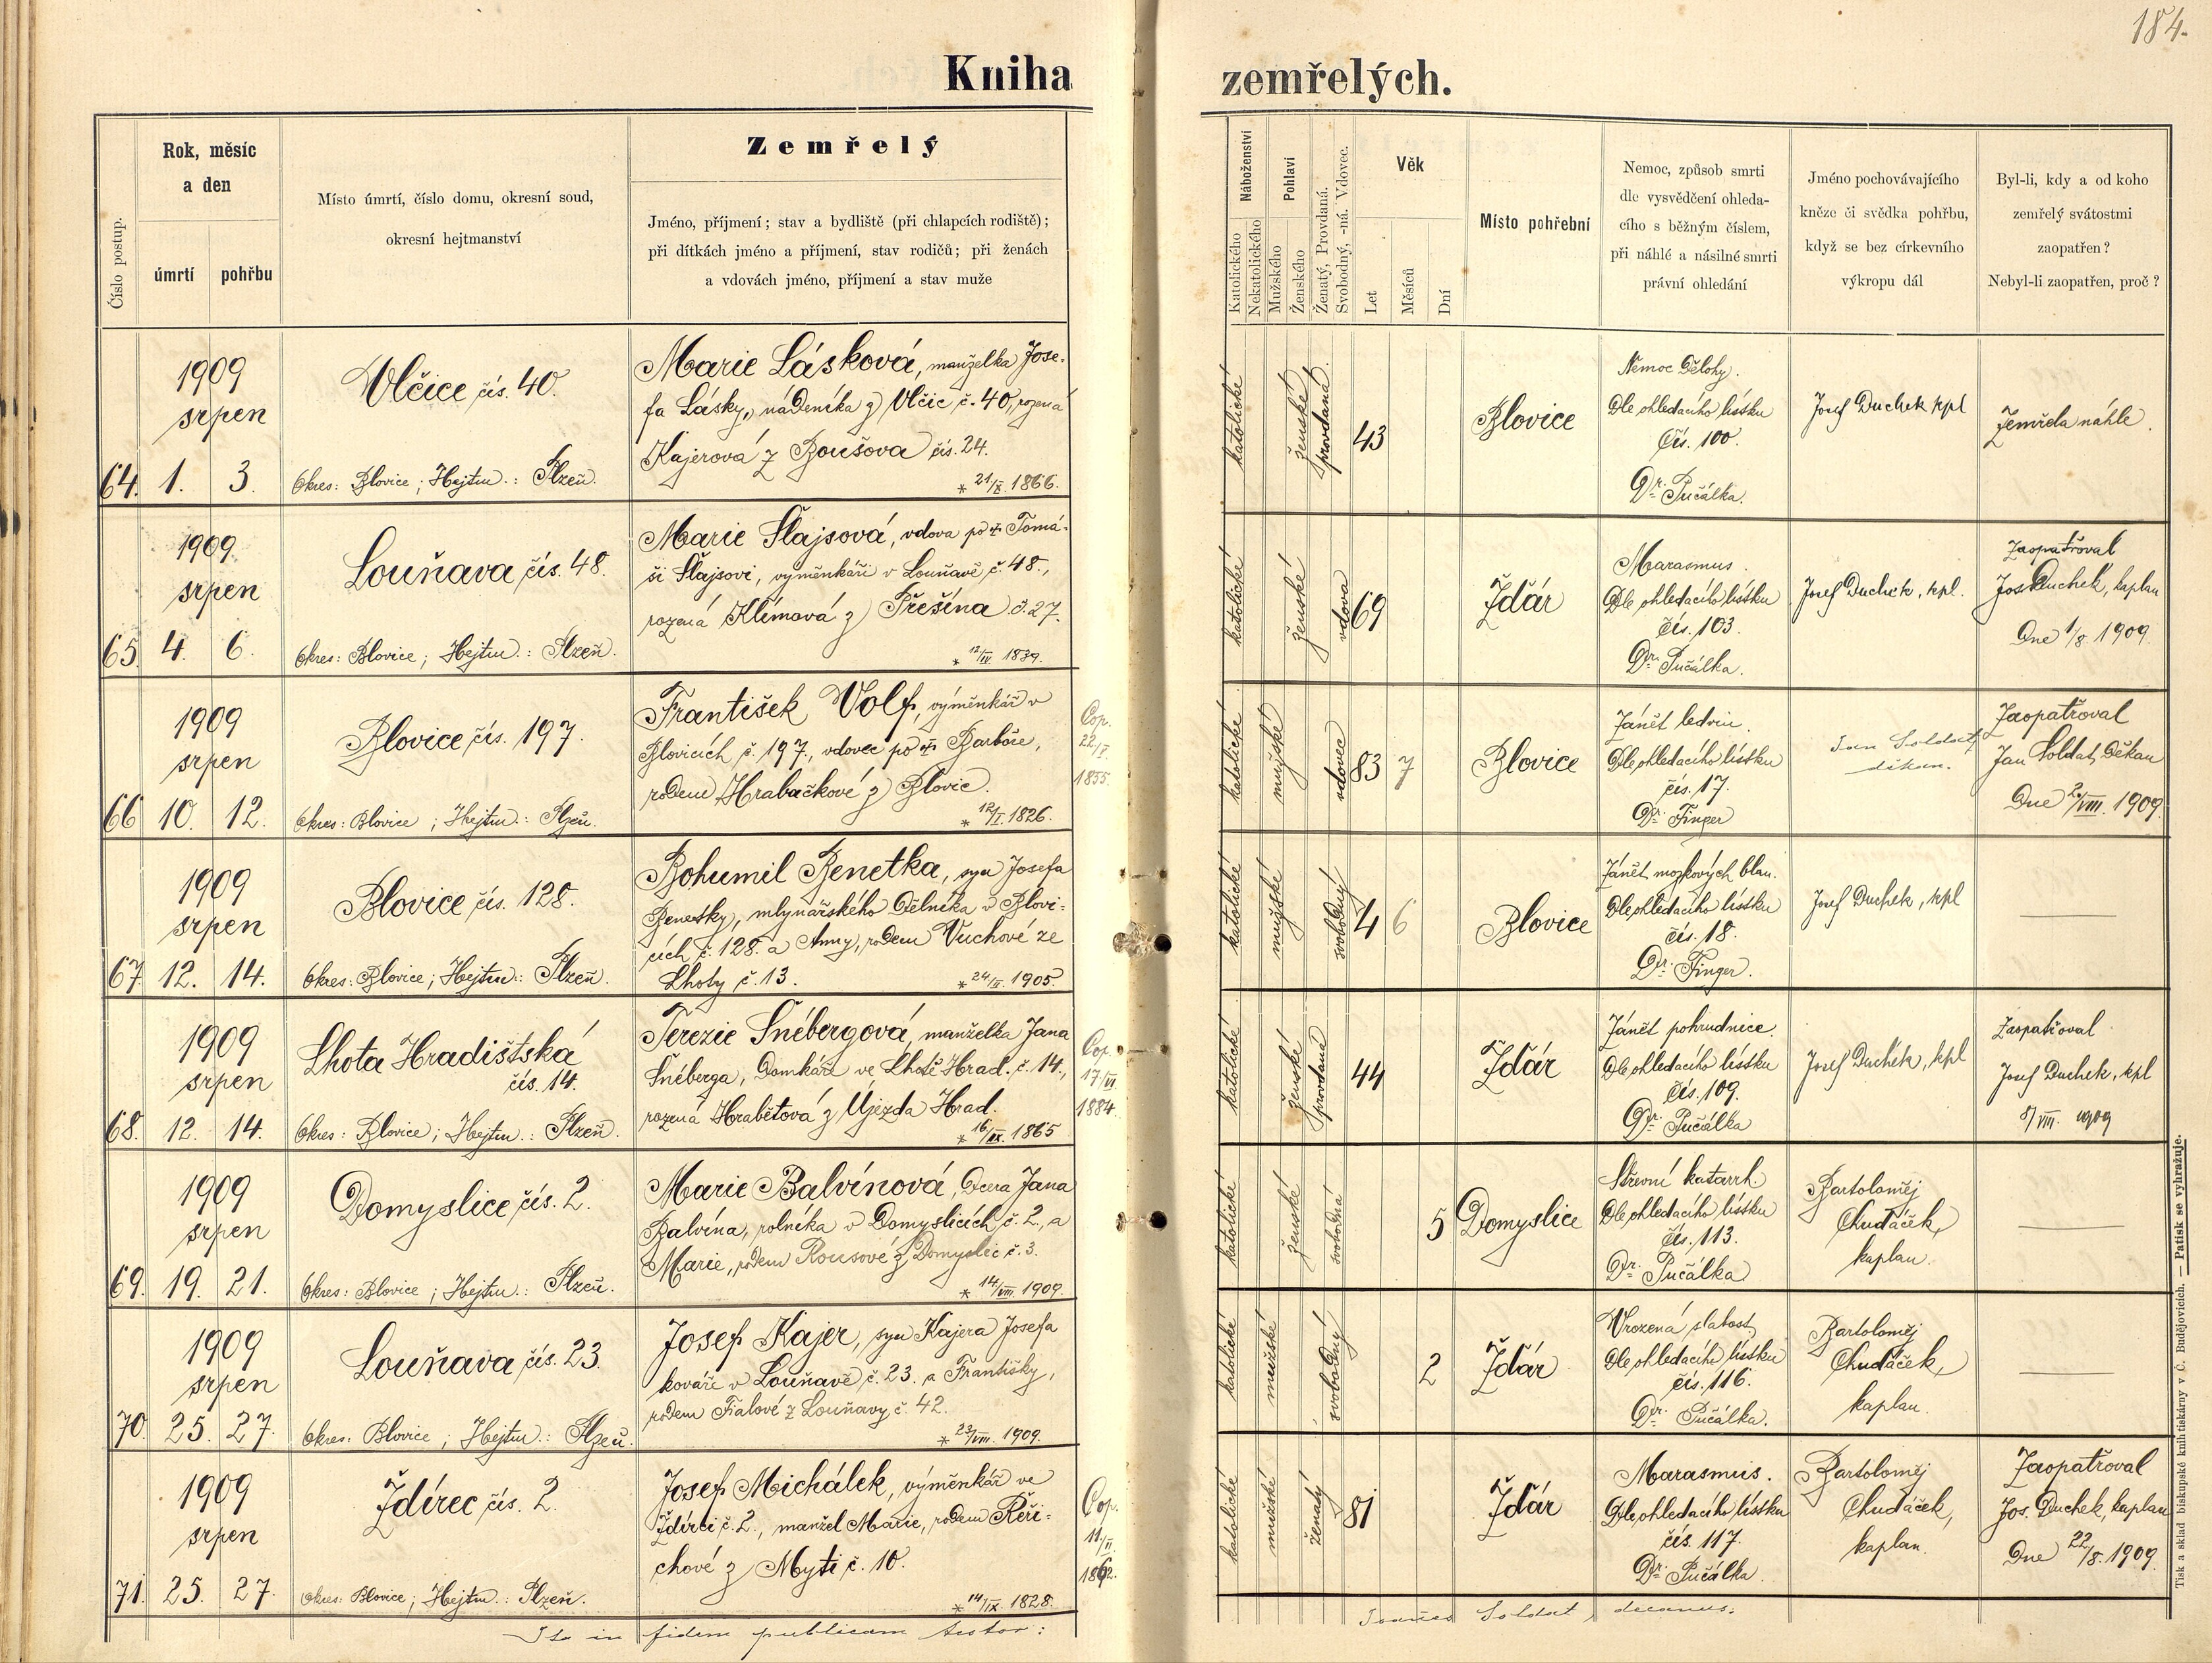 184.
Kniha zemřelých.
Číslo postup.
Rok, měsíc
a den
úmrtí
pohřbu
Místo úmrtí, číslo domu, okresní soud,
okresní hejtmanství
Zemřelý
Jméno, příjmení; stav a bydliště (při chlapcích rodiště);
při dítkách jméno a příjmení, stav rodičů; při ženách
a vdovách jméno, příjmení a stav muže
Náboženství
Katolického
Nekatolického
Pohlaví
Mužského
Ženského
Ženatý, Provdaná.
Svobodný, -ná. Vdovec.
Věk
Let
Měsíců
Dní
Místo pohřební
Nemoc, způsob smrti
dle vysvědčení ohleda-
cího s běžným číslem,
při náhlé a násilné smrti
právní ohledání
Jméno pochovávajícího
kněze či svědka pohřbu,
když se bez církevního
výkropu dál
Byl-li, kdy a od koho
zemřelý svátostmi
zaopatřen?
Nebyl-li zaopatřen, proč?
64.
1909
srpen
1. 3.
Vlčice čís. 40.
Okres: Blovice; Hejtm.: Plzeň.
Marie Lásková, manželka Jose-
fa Lásky, nádeníka z Vlčic č. 40, rozená
Kajerová z Boušova čís. 24.
* 21/X. 1866.
katolické
ženské
provdaná
43
Blovice
Nemoc dělohy.
Dle ohledacího lístku
čís. 100.
Dr. Pučálka.
Josef Duchek kpl
Zemřela náhle.
65.
1909.
srpen
4. 6.
Louňava čís. 48.
Okres: Blovice; Hejtm.: Plzeň.
Marie Šlajsová, vdova po † Tomá-
ši Šlajsovi, výměnkáři v Louňavě č. 48.,
rozená Klímová z Přešína č. 27.
* 12/IV. 1839.
katolické
ženské
vdova
69
Ždár
Marasmus.
Dle ohledacího lístku
čís. 103.
Dr. Pučálka.
Josef Duchek, kpl.
Zaopatřoval
Jos. Duchek, kaplan
Dne 1/8. 1909.
66
1909
srpen
10. 12.
Blovice čís. 197.
Okres: Blovice; Hejtm.: Plzeň.
František Volf, výměnkář v
Blovicích č. 197., vdovec po † Barboře,
rodem Hrabačkové z Blovic.
* 12/I. 1826.
Cop.
22/I.
1855.
katolické
mužské
vdovec
83 7
Blovice
Zánět ledvin.
Dle ohledacího lístku
čís. 17.
Dr. Finger
Jan Soldat,
děkan.
Zaopatřoval
Jan Soldat, děkan
Dne 2/VIII. 1909.
67.
1909
srpen
12. 14.
Blovice čís. 128.
Okres: Blovice; Hejtm.: Plzeň.
Bohumil Benetka, syn Josefa
Benetky, mlynářského dělníka v Blovi-
cích č. 128. a Anny, rodem Vuchové ze
Lhoty č. 13.
* 24/II. 1905.
katolické
mužské
svobodný
4 6
Blovice
Zánět mozkových blan.
Dle ohledacího lístku
čís. 18.
Dr. Finger.
Josef Duchek, kpl
68.
1909
srpen
12. 14.
Lhota Hradištská
čís. 14.
Okres: Blovice; Hejtm.: Plzeň.
Terezie Šnébergová, manželka Jana
Šnéberga, domkáře ve Lhotě Hrad. č. 14.,
rozená Hrabětová z Újezda Hrad.
* 16/IX. 1865
Cop.
17/VI.
1884.
katolické
ženské
provdaná
44
Ždár
Zánět pohrudnice.
Dle ohledacího lístku
čís. 109.
Dr. Pučálka
Josef Duchek, kpl
Zaopatřoval
Josef Duchek, kpl
8/VIII. 1909
69.
1909
srpen
19. 21.
Domyslice čís. 2.
Okres: Blovice; Hejtm.: Plzeň.
Marie Balvínová, dcera Jana
Balvína, rolníka v Domyslicích č. 2., a
Marie, rodem Rousové z Domyslic č. 3.
* 14/VIII. 1909.
katolické
ženské
svobodná
5
Domyslice
Střevní katarrh.
Dle ohledacího lístku
čís. 113.
Dr. Pučálka
Bartoloměj
Chudáček,
kaplan.
70.
1909
srpen
25. 27.
Louňava čís. 23.
Okres: Blovice; Hejtm.: Plzeň.
Josef Kajer, syn Kajera Josefa
kováře v Louňavě č. 23. a Františky,
rodem Fialové z Louňavy č. 42.
* 23/VIII. 1909.
katolické
mužské
svobodný
2
Ždár
Vrozená slabost,
Dle ohledacího lístku
čís. 116.
Dr. Pučálka.
Bartoloměj
Chudáček,
kaplan.
71.
1909
srpen
25. 27.
Ždírec čís. 2.
Okres: Blovice; Hejtm.: Plzeň.
Josef Michálek, výměnkář ve
Ždírci č. 2., manžel Marie, rodem Řeři-
chové z Mýti č. 10.
* 14/IX. 1828.
Cop.
11/II.
1862.
katolické
mužské
ženatý
81
Ždár
Marasmus.
Dle ohledacího lístku
čís. 117.
Dr. Pučálka.
Bartoloměj
Chudáček,
kaplan.
Zaopatřoval
Jos. Duchek, kaplan
Dne 22/8. 1909.
Ita in fidem publicam testor:
Joannes Soldat, decanus.
Tisk a sklad biskupské knihtiskárny v Č. Budějovicích. — Patisk se vyhražuje.